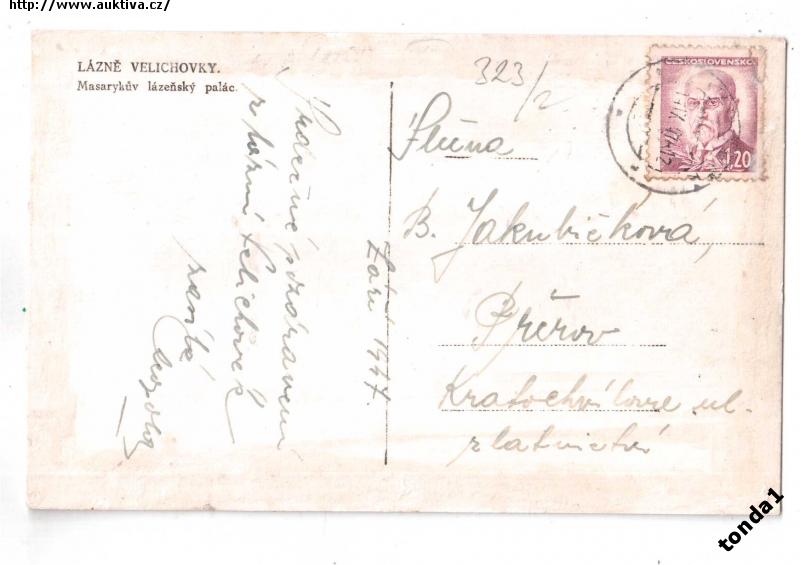 http://www.auktiva.cz/
LÁZNĚ VELICHOVKY.
Masarykův lázeňský palác.
Srdečné pozdravení
z lázní Velichovek
Září 1947.
323/2
Slečna
B. Jakubíčková,
Přerov
Kratochvílova ul.
zlatnictví
ČESKOSLOVENSKO
1.20
tonda1